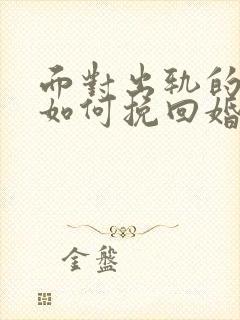 而對出軌的
如何挽回婚
金盤